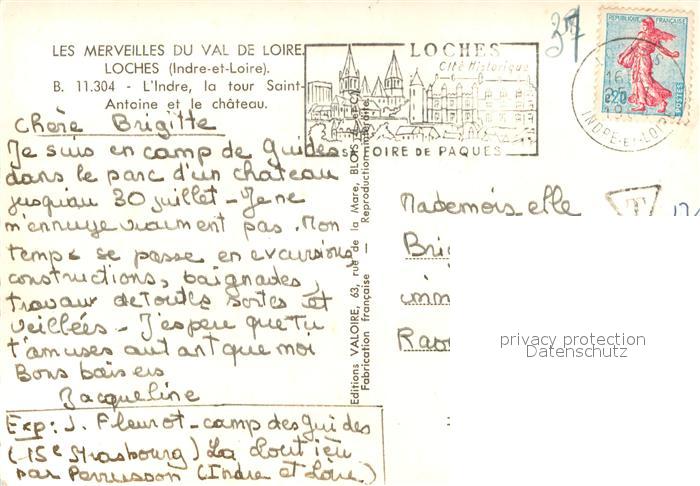 LES MERVEILLES DU VAL DE LOIRE
LOCHES (Indre-et-Loire).
B. 11.304 - L'Indre, la tour Saint-
Antoine et le château.
Chère Brigitte
Je suis en camp de Guides
dans le parc d'un château
jusqu'au 30 juillet - Je ne
m'ennuye vraiment pas. Mon
temps se passe en excursions,
constructions, baignades,
travaux de toutes sortes et
veillées - J'espère que tu
t'amuses autant que moi
Bons baisers
Jacqueline
Exp: J. Fleurot - camp des guides
(15e Strasbourg) La
par Perrusson (Indre et Loire)
Editions VALOIRE, 63, rue de la Mare, BLOIS
Fabrication française Reproduction interdite
37
LOCHES
Cité Historique
FOIRE DE PAQUES
REPUBLIQUE FRANÇAISE
0,20
POSTES
INDRE-ET-LOIRE
T
Mademoiselle
Bri
imm
Rao
privacy protection
Datenschutz